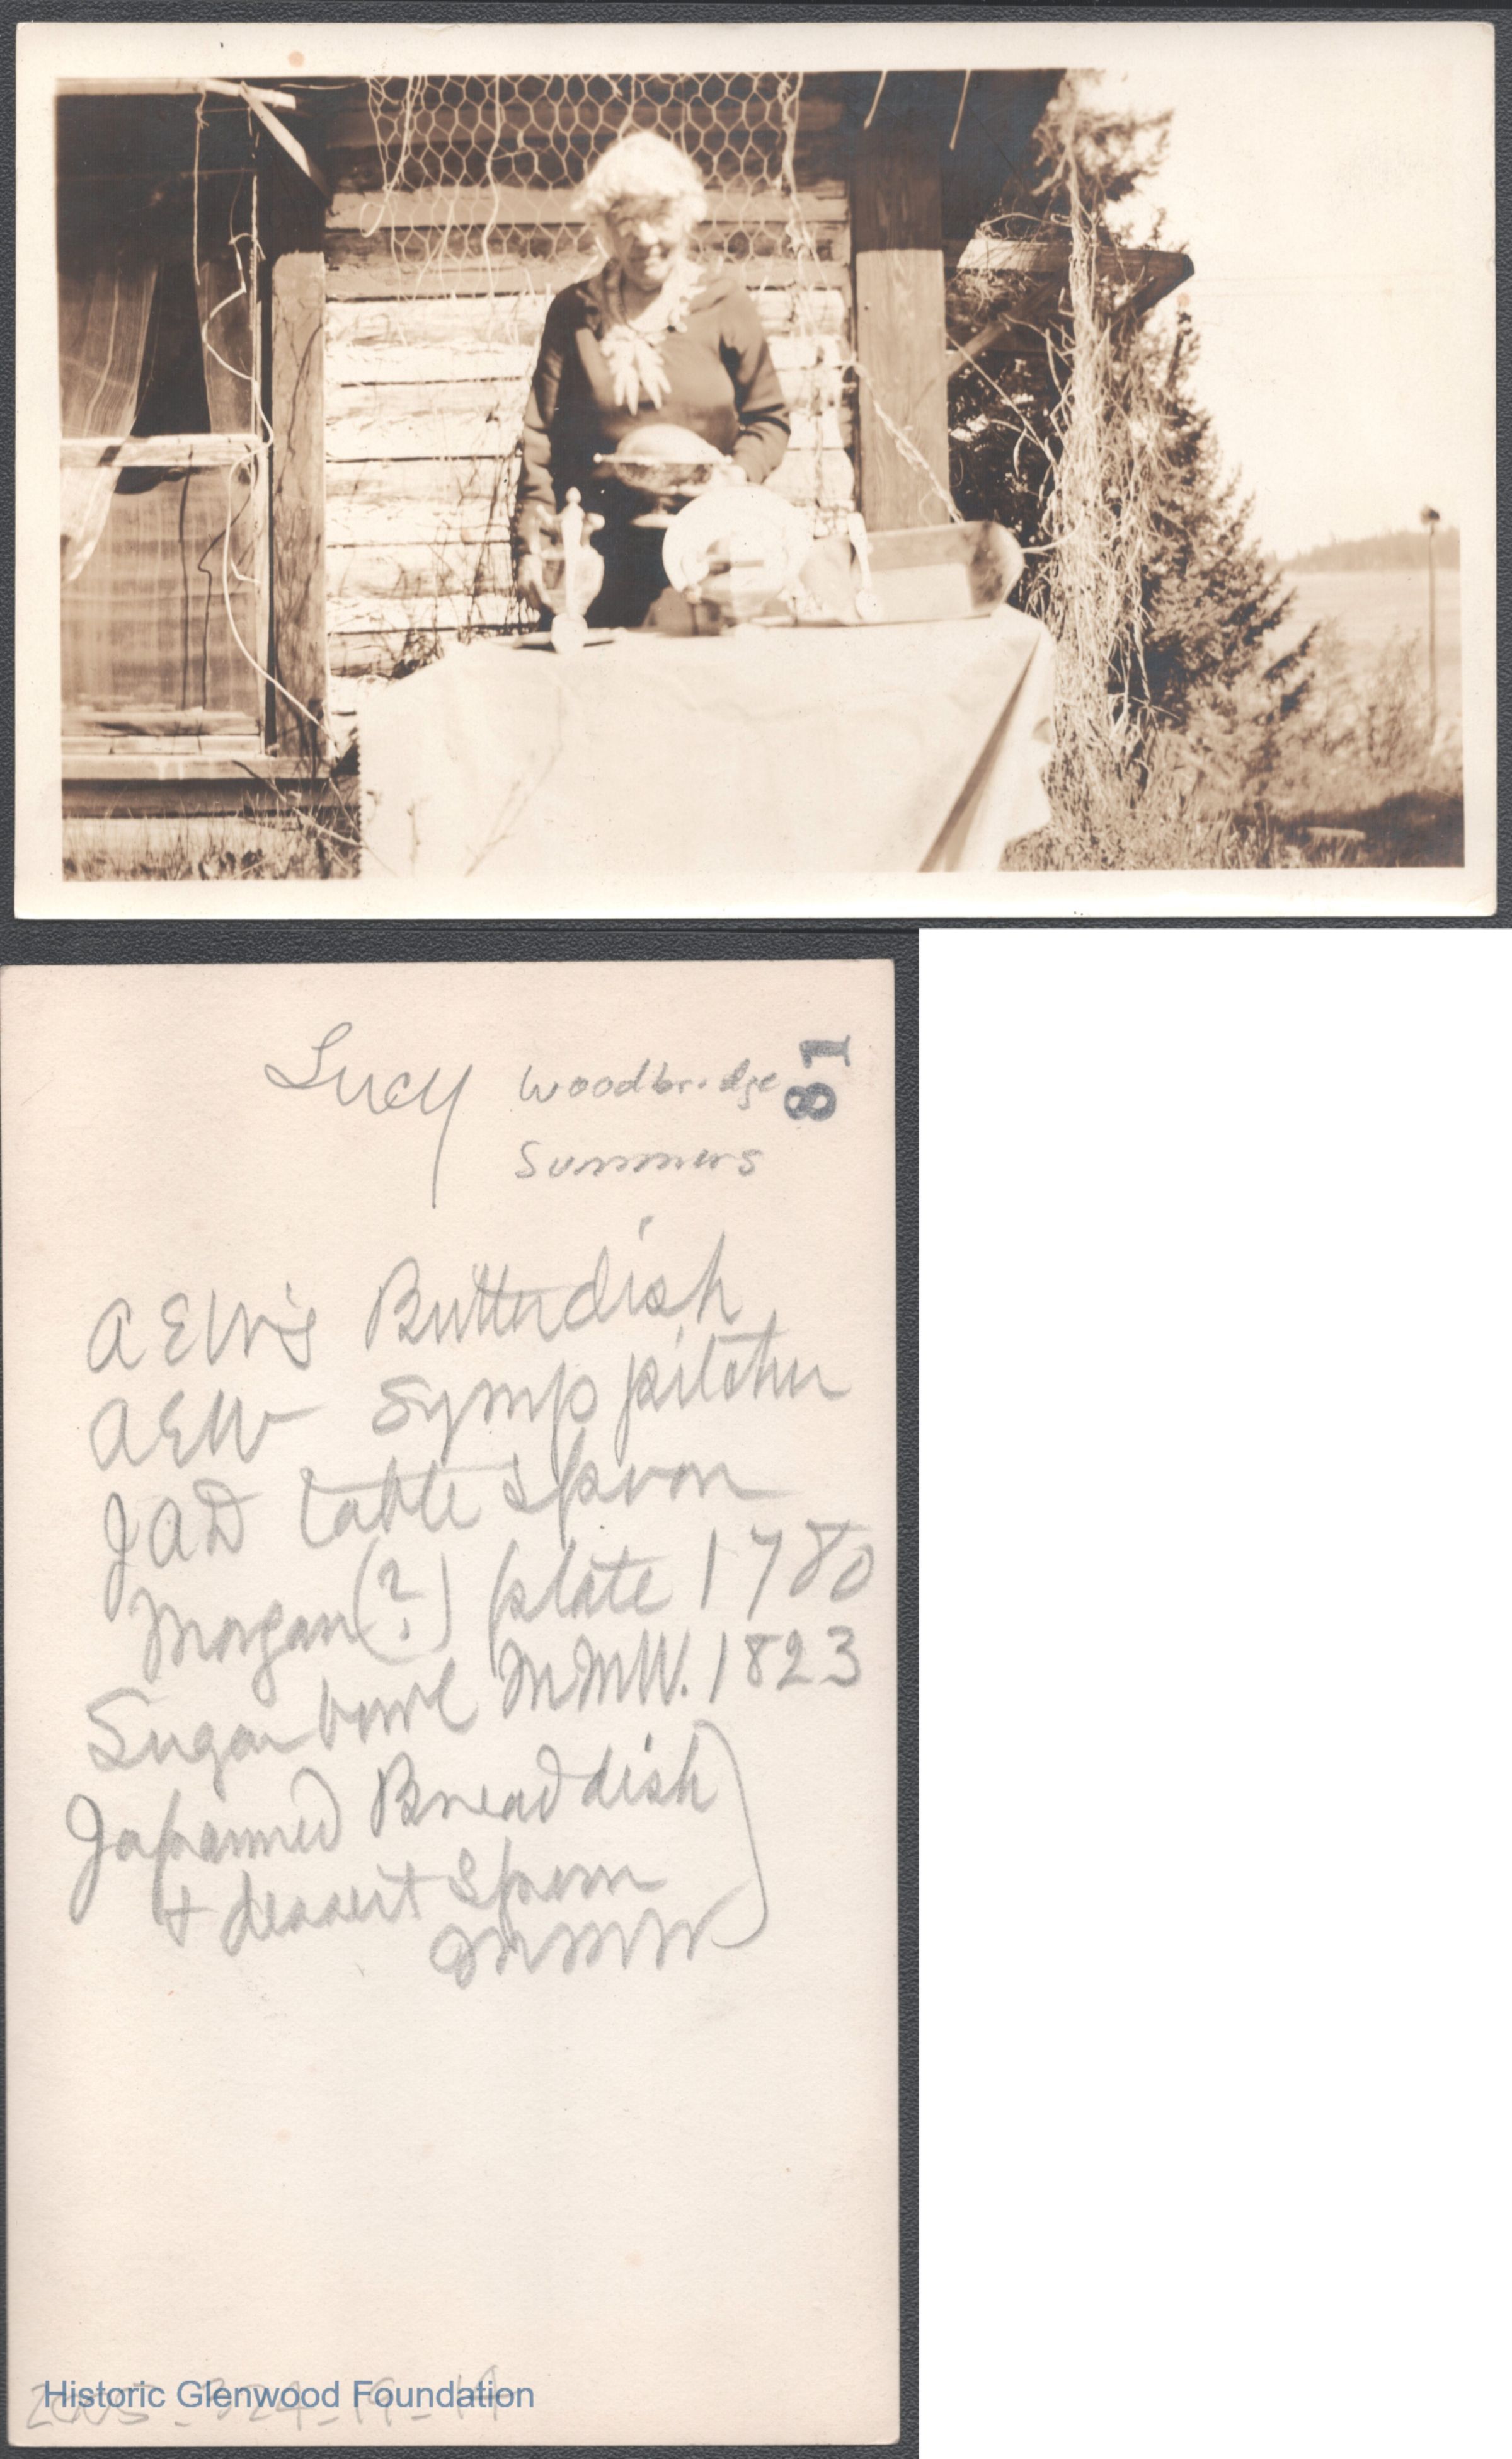 Lucy Woodbridge
Summers
81
AEW's Butterdish
AEW Syrup pitcher
JAD table spoon
Morgan (?) plate 1780
Sugar bowl MMW. 1823
Japanned Bread dish
+ dessert spoon
MMW
Historic Glenwood Foundation
2005-324-19-19